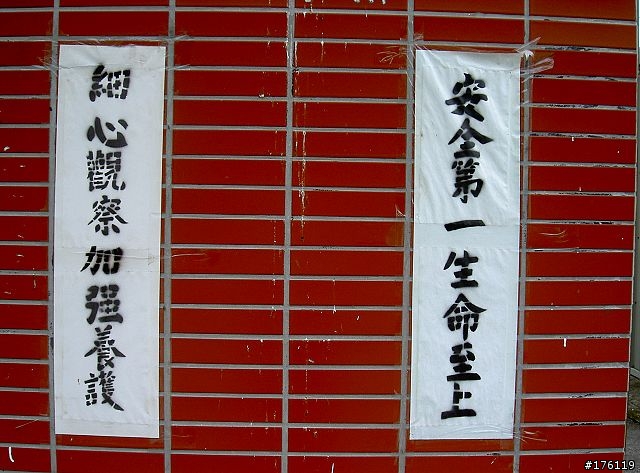 安全第一生命至上
細心觀察加強養護
#176119